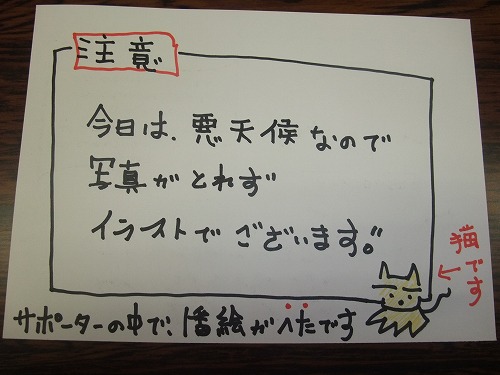 注意
今日は、悪天候なので
写真がとれず
イラストでございます。
猫です
サポーターの中で、1番絵がへたです